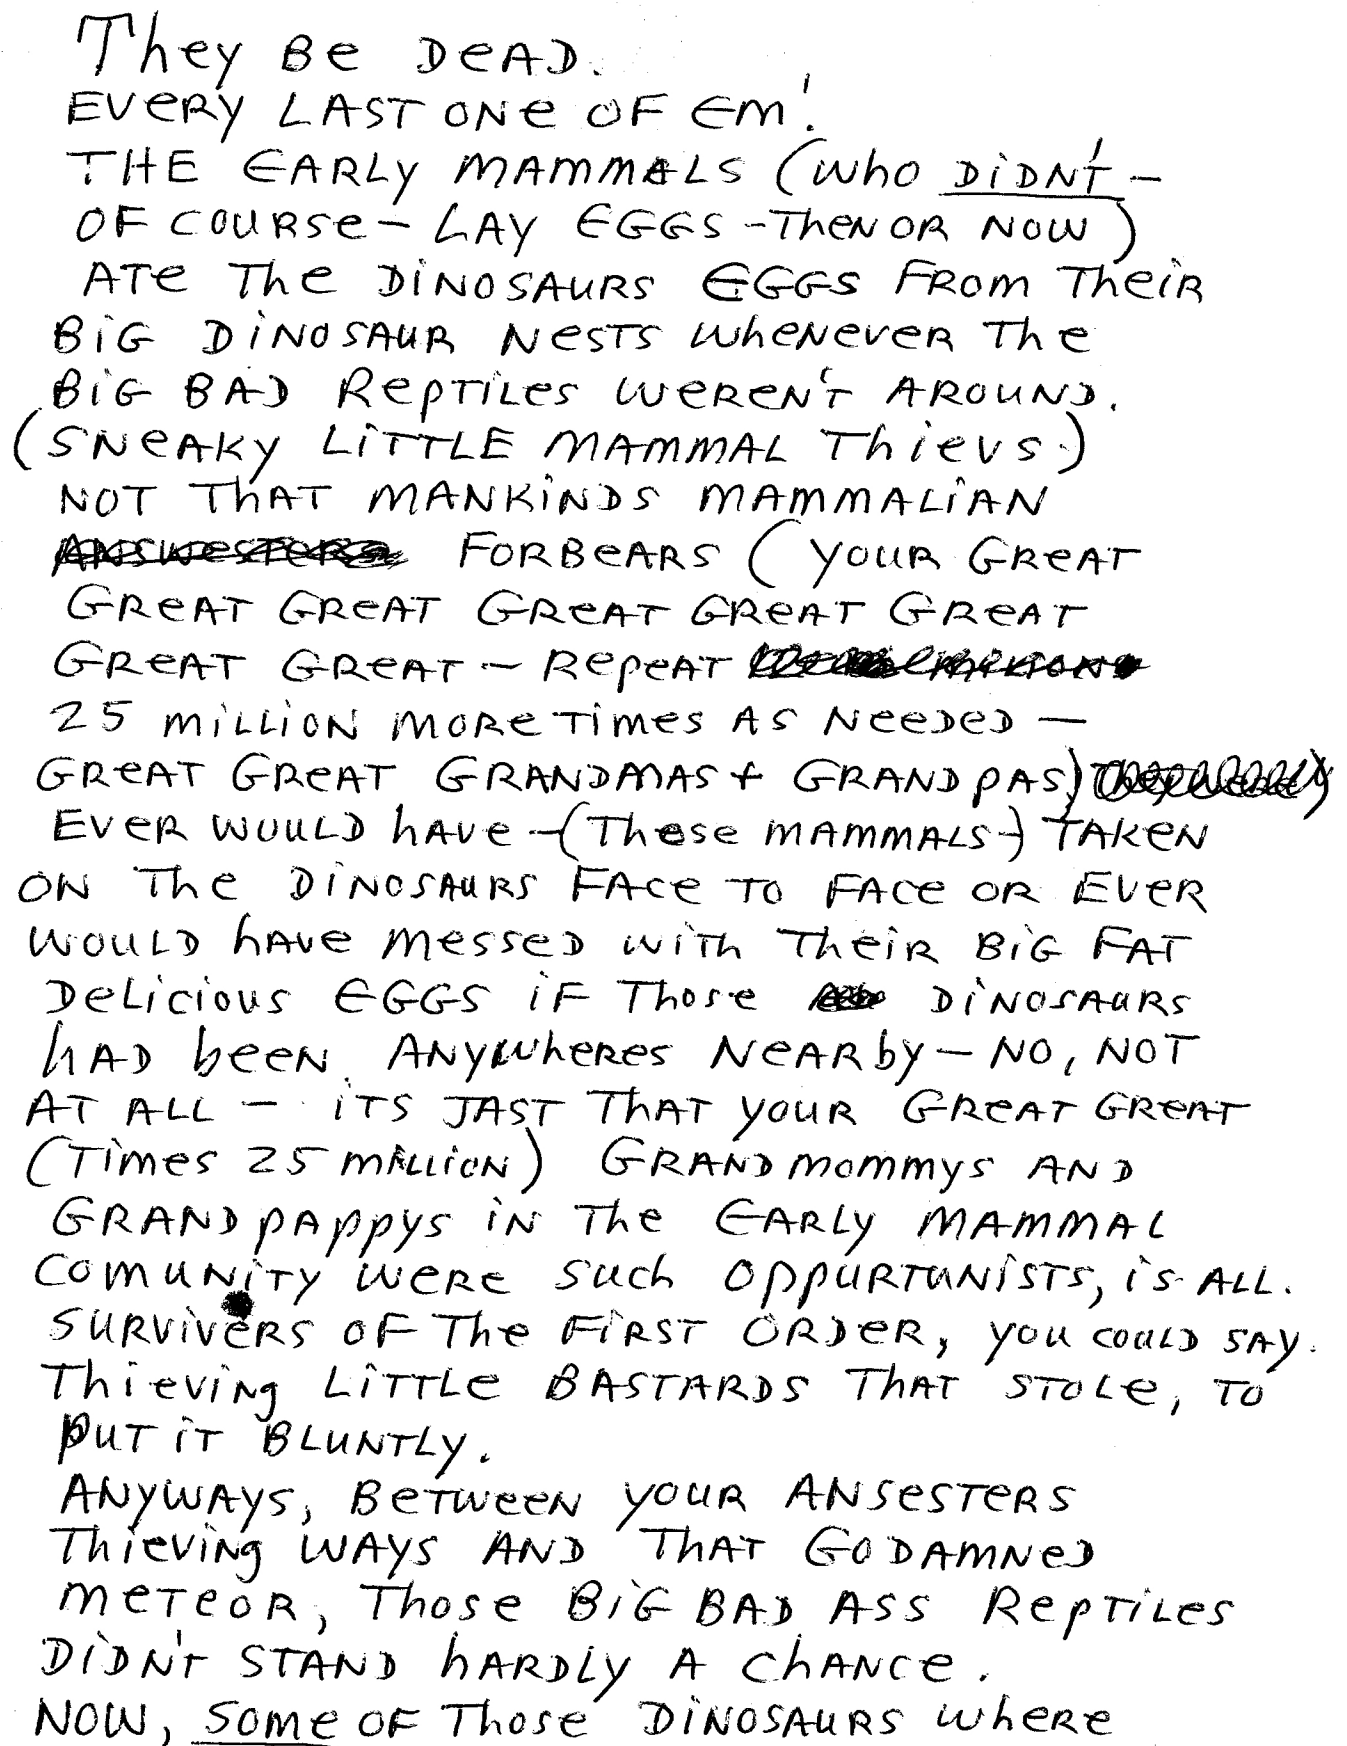 They Be DeAD.
EVERY LAST ONE OF Em!
THE EARLY MAMMALS (Who DiDN'T –
OF COURSE – LAY EGGS – Then OR NOW)
ATE The DiNOSAURS EGGS FROM TheiR
BiG DiNOSAUR NESTS WheNeveR The
BiG BAD RepTiLes WEREN'T AROUND.
(SNEAKY LiTTLE MAMMAL Thievs.)
NOT ThAT MANKiNDS MAMMALiAN
ANSwesTeRs FORBEARS (YOUR GREAT
GREAT GREAT GREAT GREAT GREAT
GREAT GREAT – RepeAT
25 MiLLiON MORE Times AS NeeDeD –
GREAT GREAT GRANDMAS + GRANDpAS) They were
EveR WOULD hAve – (These MAMMALS –) TAKeN
ON The DiNOSAURS FAce TO FAce OR EveR
WOULD hAve messeD wiTh TheiR BiG FAT
DeLicious EGGS iF Those DiNOSAURS
hAD beeN ANywheres NeARby – NO, NOT
AT ALL – iTS JAST ThAT youR GREAT GREAT
(Times 25 miLLioN) GRANDmommys AND
GRANDpAppys iN The EARLy MAMMAL
ComuNiTY WeRe Such OppuRTuNiSTS, iS ALL.
SURViveRS OF The FiRST ORDeR, you couLD SAy.
Thieving LiTTLe BASTARDS ThAT SToLe, TO
puT iT BLUNTLy.
ANYWAYS, BeTweeN youR ANSeSTeRS
Thieving WAYS AND ThAT GODAMNeD
meTeOR, Those BiG BAD ASS RepTiLes
DiDN'T STAND hARDLy A chANce.
NOW, Some OF Those DiNOSAURS wheRe